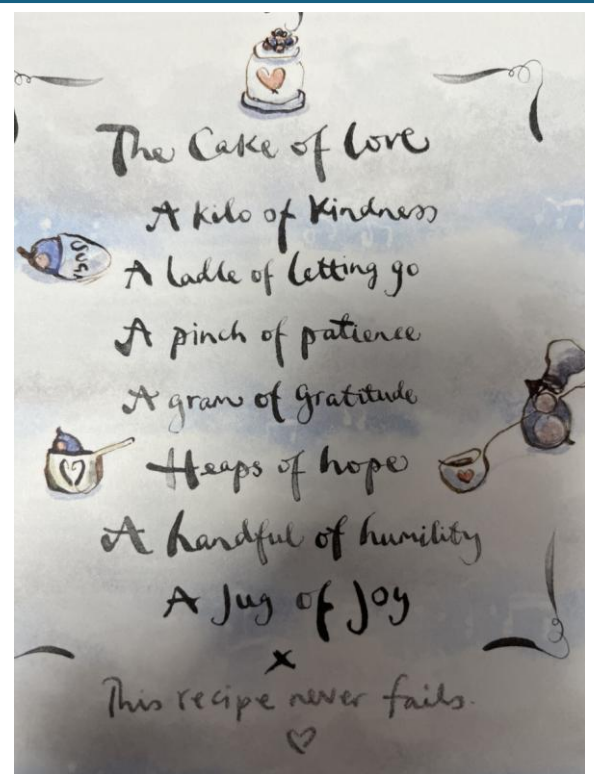 The Cake of love
A kilo of Kindness
A ladle of letting go
A pinch of patience
A gram of gratitude
Heaps of hope
A handful of humility
A Jug of Joy
x
This recipe never fails.